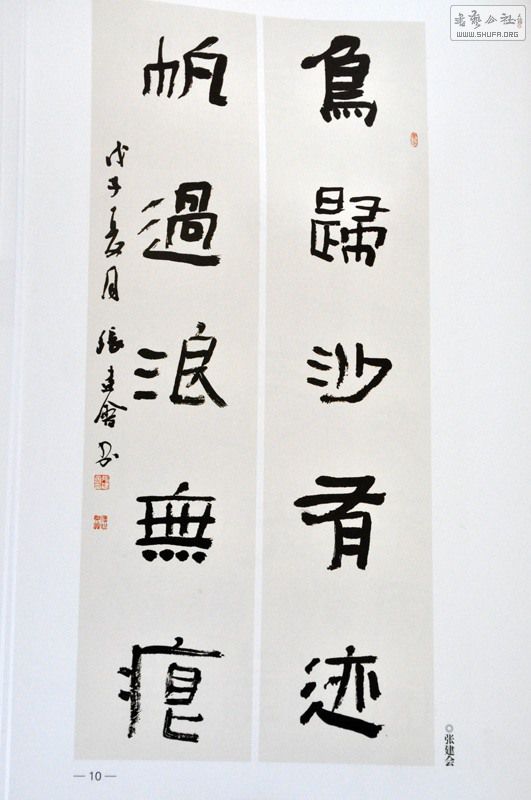 鳥歸沙有迹
帆過浪無痕
戊子夏月 張建會書
◎张建会
10
书艺公社
WWW.SHUFA.ORG